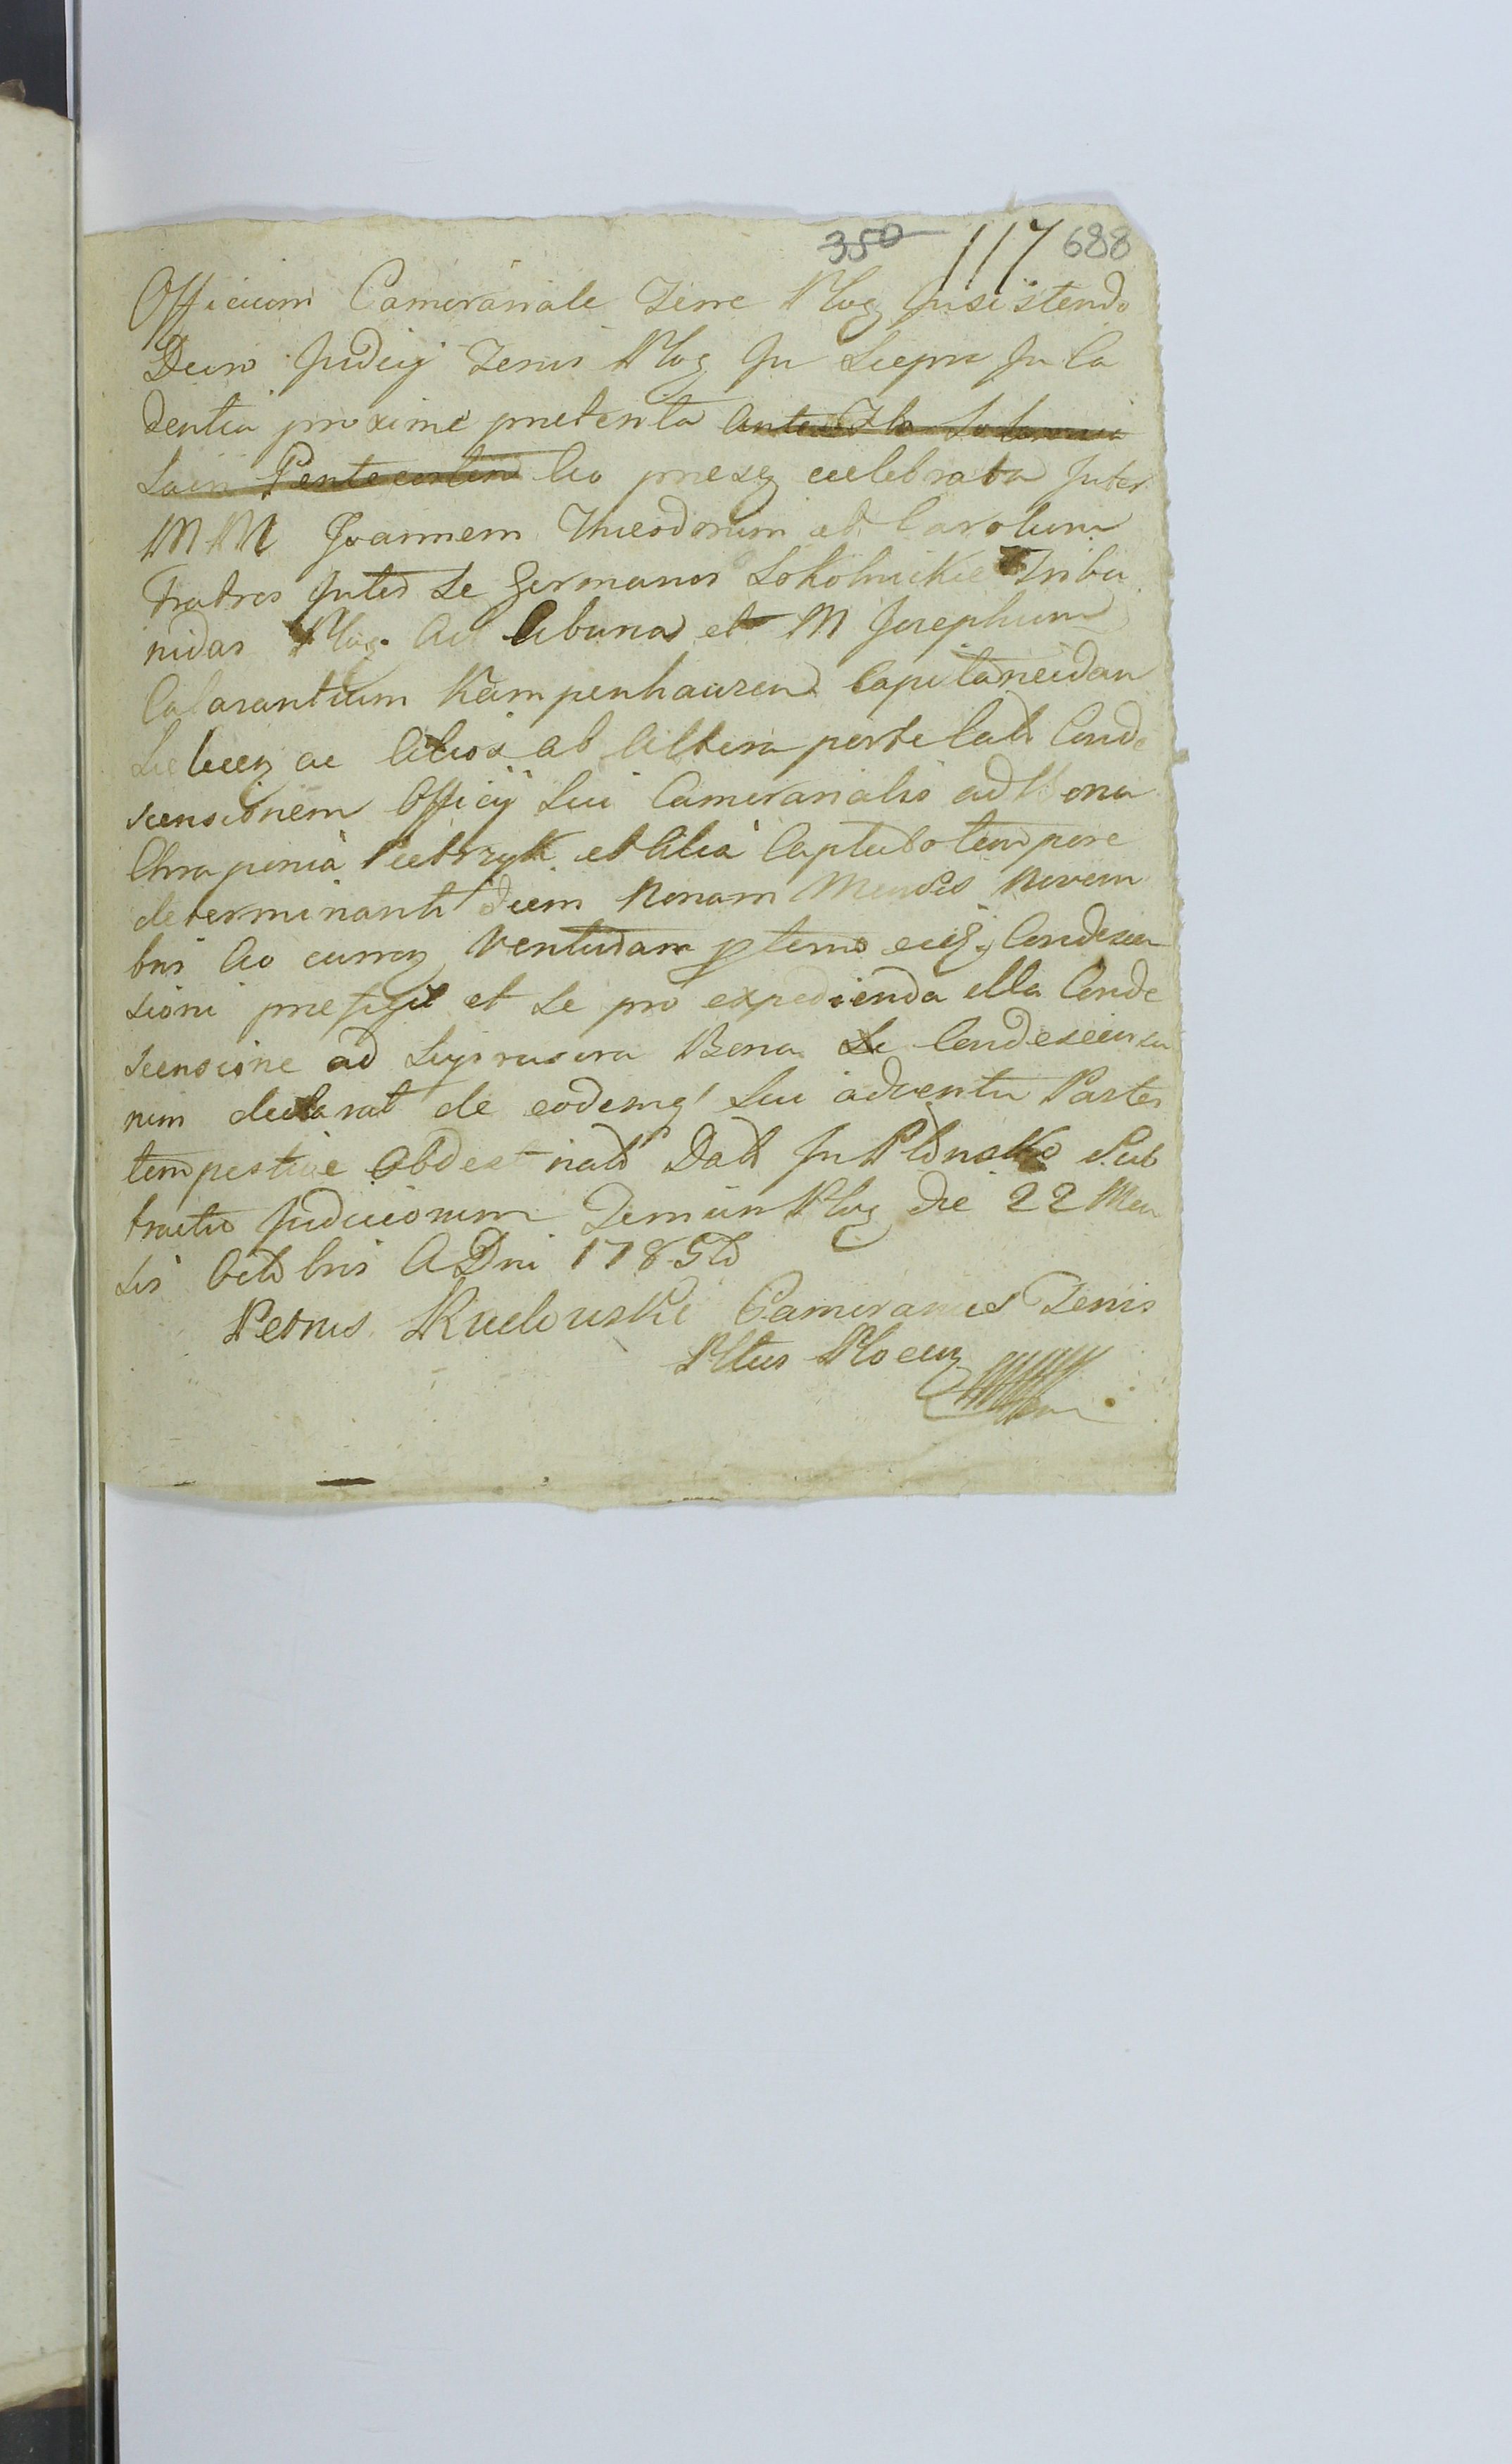 350 117 688
Officium Cameranale Terre Plog Insistendo
Decro Judicij Terris Plog In Sieprc In Ca
dentia proxime preterita Ante Fta Solennia
Sacri Pentecosten Ao presg celebrata Inter
MM Joannem Theodorum et Carolum
Fratres Inter Se Germanos Sokolnickie Tribu
nidas Plog. Ab una et M Josephum
Calasantium Kampenhauzen Capitaneidam
ac Alios ab Altera parte Lati Conde
scensionem Officij Sui Cameranalis ad Bona
Chraponia et Alia Captuto tempore
determinanti diem Nonam Mensis Novem
bris Ao curreg Venturam p termo eidg Condescen
sioni prefigit et Se pro expedienda illa Conde
scensione ad Suprascra Bona Se Condescensu
rum declarat de eodemq Sui adventu Partes
tempestive Obdestinat Dat In Płonsko Sub
tractu Judiciorum Terrium Plog Die 22 Men
sis Octobris A Dni 1785to
Petrus Camerarius Terris
Pltus Plocen